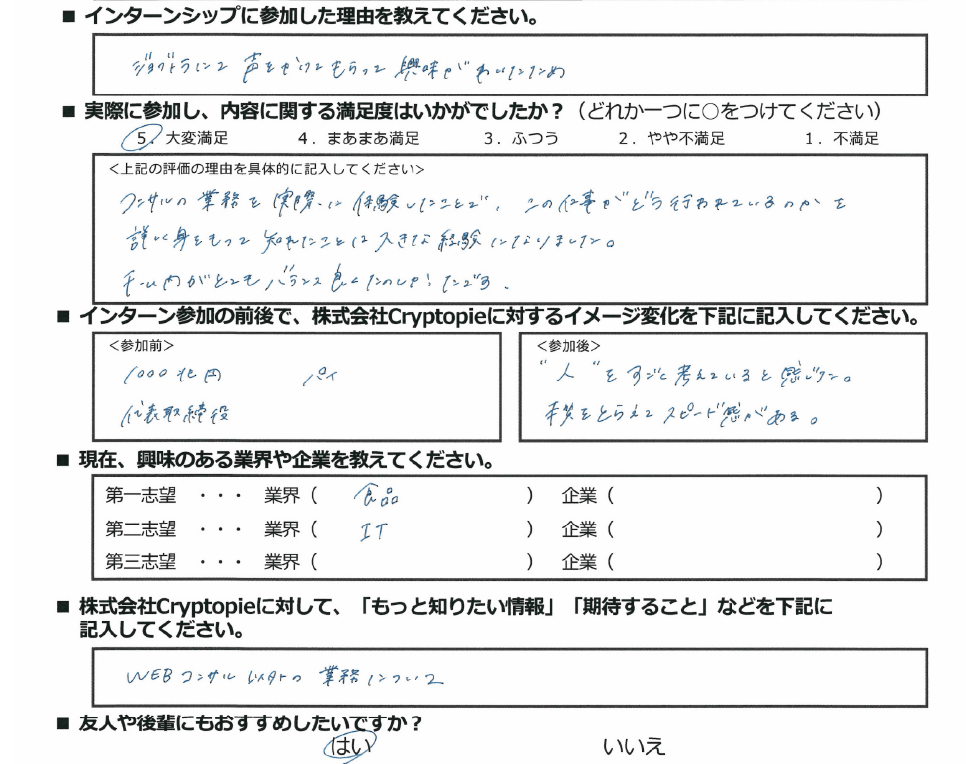 ■ インターンシップに参加した理由を教えてください。
ジョブトラにて声をかけてもらって興味がわいたため
■ 実際に参加し、内容に関する満足度はいかがでしたか？（どれか一つに○をつけてください）
5．大変満足 4．まあまあ満足 3．ふつう 2．やや不満足 1．不満足
<上記の評価の理由を具体的に記入してください>
コンサルの業務を実際に体験したことで，この仕事がどう行われているのかを
詳しく身をもって知れたことは大きな経験になりました。
チーム内がとてもバランス良くたのしかったです．
■ インターン参加の前後で、株式会社Cryptopieに対するイメージ変化を下記に記入してください。
<参加前>
1000兆円 パイ
代表取締役
<参加後>
"人"をすごく考えていると感じた。
本質をとらえてスピード感がある。
■ 現在、興味のある業界や企業を教えてください。
第一志望 ・・・ 業界（ 食品 ） 企業（ ）
第二志望 ・・・ 業界（ IT ） 企業（ ）
第三志望 ・・・ 業界（ ） 企業（ ）
■ 株式会社Cryptopieに対して、「もっと知りたい情報」「期待すること」などを下記に
記入してください。
WEBコンサル以外の業務について
■ 友人や後輩にもおすすめしたいですか？
はい いいえ